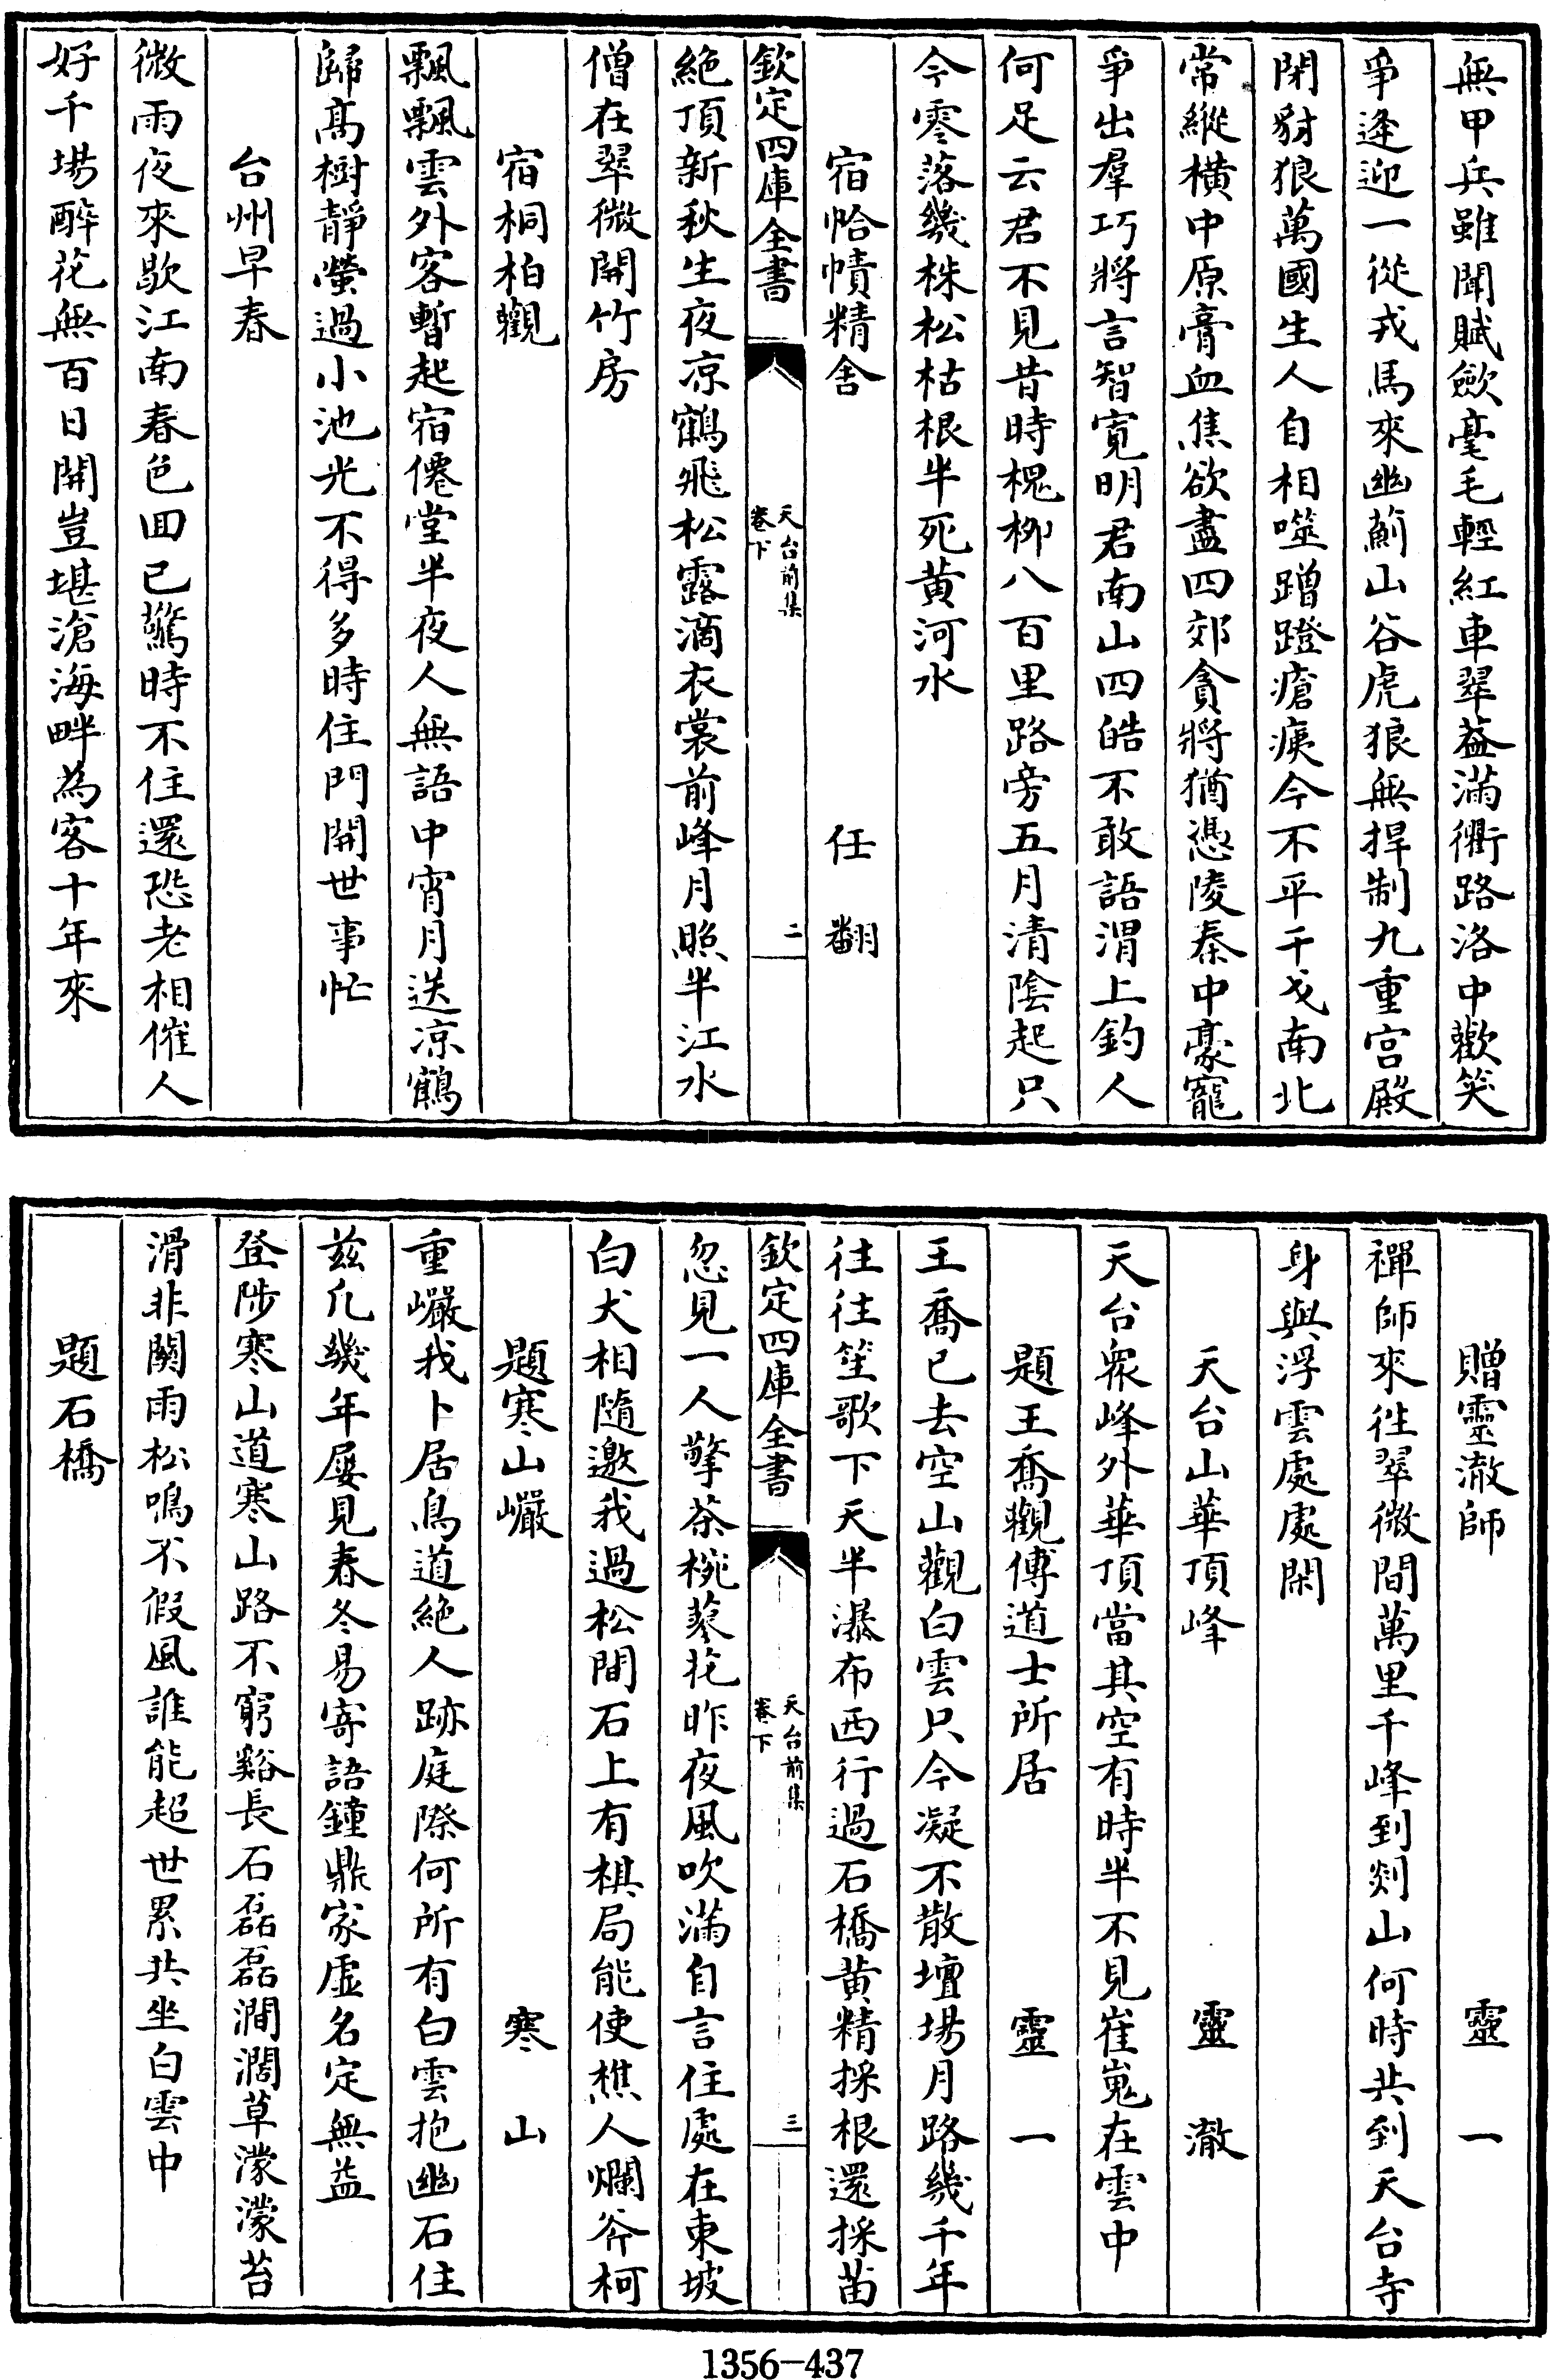 無甲兵雖聞賦歛毫毛輕紅車翠葢滿衢路洛中歡笑
爭逢迎一從戎馬來幽薊山谷虎狼無捍制九重宫殿
閉豺狼萬國生人自相噬蹭蹬瘡痍今不平干戈南北
常縱横中原膏血焦欲盡四郊貪將猶憑陵秦中豪寵
爭出羣巧將言智寛明君南山四皓不敢語渭上釣人
何足云君不見昔時槐栁八百里路旁五月清陰起只
今零落幾株松枯根半死黄河水
宿帢幘精舍 任翻
欽定四庫全書 天台前集卷下 二
絶頂新秋生夜凉鶴飛松露滴衣裳前峰月照半江水
僧在翠微開竹房
宿桐柏觀
飄飄雲外客暫起宿僊堂半夜人無語中宵月送凉鶴
歸髙樹靜螢過小池光不得多時住門開世事忙
台州早春
微雨夜來歇江南春色回已驚時不住還恐老相催人
好千場醉花無百日開豈堪滄海畔為客十年來
贈靈澈師 靈一
禪師來往翠微間萬里千峰到剡山何時共到天台寺
身與浮雲處處閑
天台山華頂峰 靈澈
天台衆峰外華頂當其空有時半不見崔嵬在雲中
題王喬觀傅道士所居 靈一
王喬已去空山觀白雲只今凝不散壇場月路幾千年
往往笙歌下天半瀑布西行過石橋黄精採根還採苗
欽定四庫全書 天台前集卷下 三
忽見一人擎茶椀蓼花昨夜風吹滿自言住處在東坡
白犬相隨邀我過松間石上有棋局能使樵人爛斧柯
題寒山巖 寒山
重巖我卜居鳥道絶人跡庭際何所有白雲抱幽石住
兹凡幾年屢見春冬易寄語鐘鼎家虚名定無益
登陟寒山道寒山路不窮谿長石磊磊澗濶草濛濛苔
滑非闗雨松鳴不假風誰能超世累共坐白雲中
題石橋
1356-437